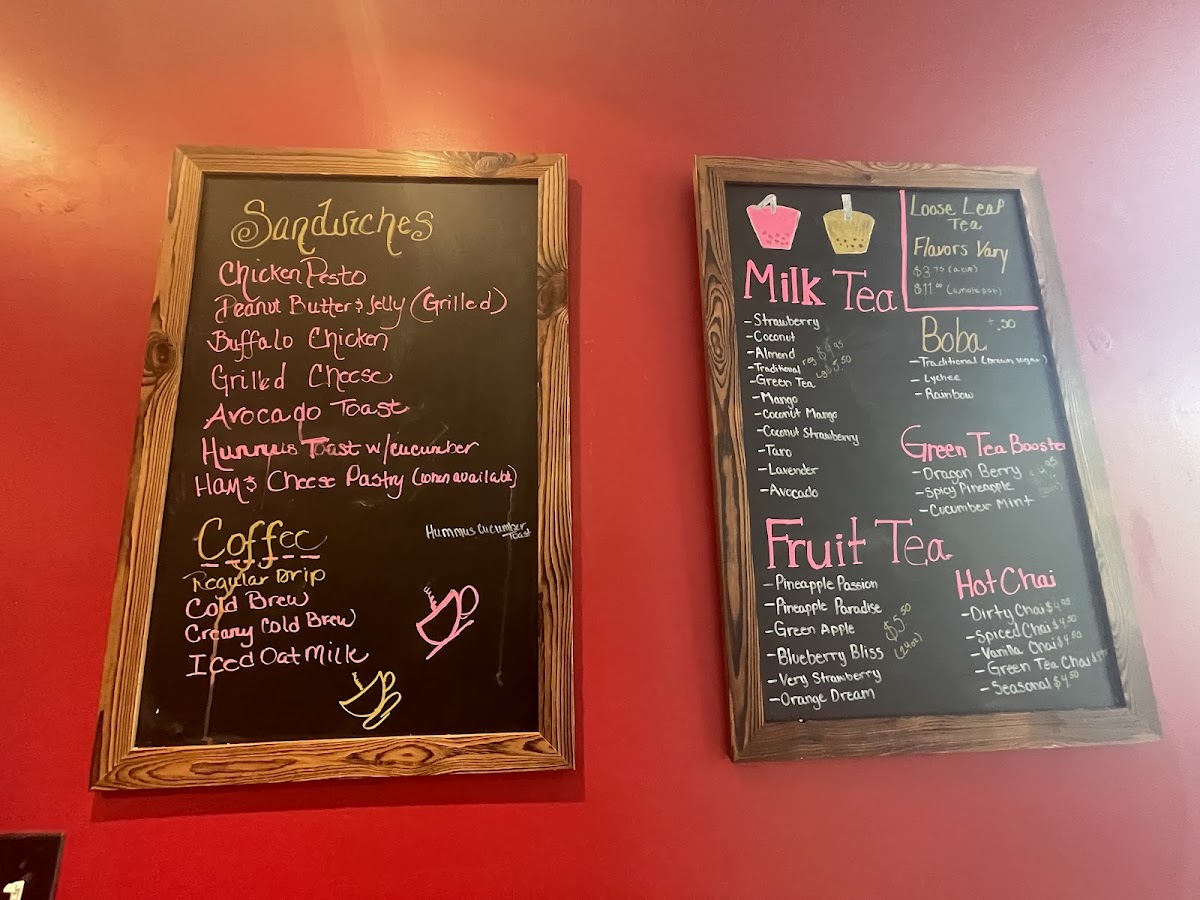 Sandwiches
Chicken Pesto
Peanut Butter & Jelly (Grilled)
Buffalo Chicken
Grilled Cheese
Avocado Toast
Hummus Toast w/cucumber
Ham & Cheese Pastry (when available)
Coffee
Regular Drip
Cold Brew
Creamy Cold Brew
Iced Oat Milk
Hummus Cucumber
Toast
Loose Leaf
Tea
Flavors Vary
$3.75 (a cup)
$11.00 (whole pot)
Milk Tea
-Strawberry
-Coconut
-Almond
-Traditional
-Green Tea
-Mango
-Coconut Mango
-Coconut Strawberry
-Taro
-Lavender
-Avocado
reg $4.95
lg $5.50
Boba +.50
-Traditional (brown sugar)
- Lychee
- Rainbow
Green Tea Booster
-Dragon Berry
-Spicy Pineapple
-Cucumber Mint
Fruit Tea
-Pineapple Passion
-Pineapple Paradise
-Green Apple
-Blueberry Bliss
-Very Strawberry
-Orange Dream
$5.50
(24oz)
Hot Chai
-Dirty Chai $4.95
-Spiced Chai $4.50
-Vanilla Chai $4.50
-Green Tea Chai
-Seasonal $4.50
1